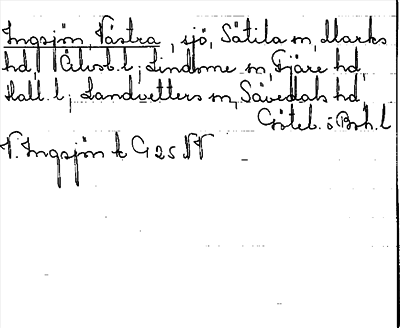 Ingsjön, Västra, sjö, Sätila sn, Marks
hd, Älvsb. l, Lindome sn, Fjäre hd,
Hall. l, Landvetters sn, Sävedals hd,
Göteb. o Boh. l
V. Ingsjön k G 25 NV